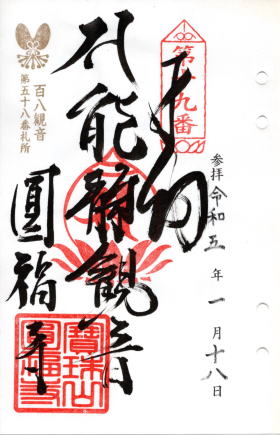 第十九番
参拝 令和五年一月十八日
能静観音
圓福寺
百八観音
第五十八番札所
寶珠山
圓福寺